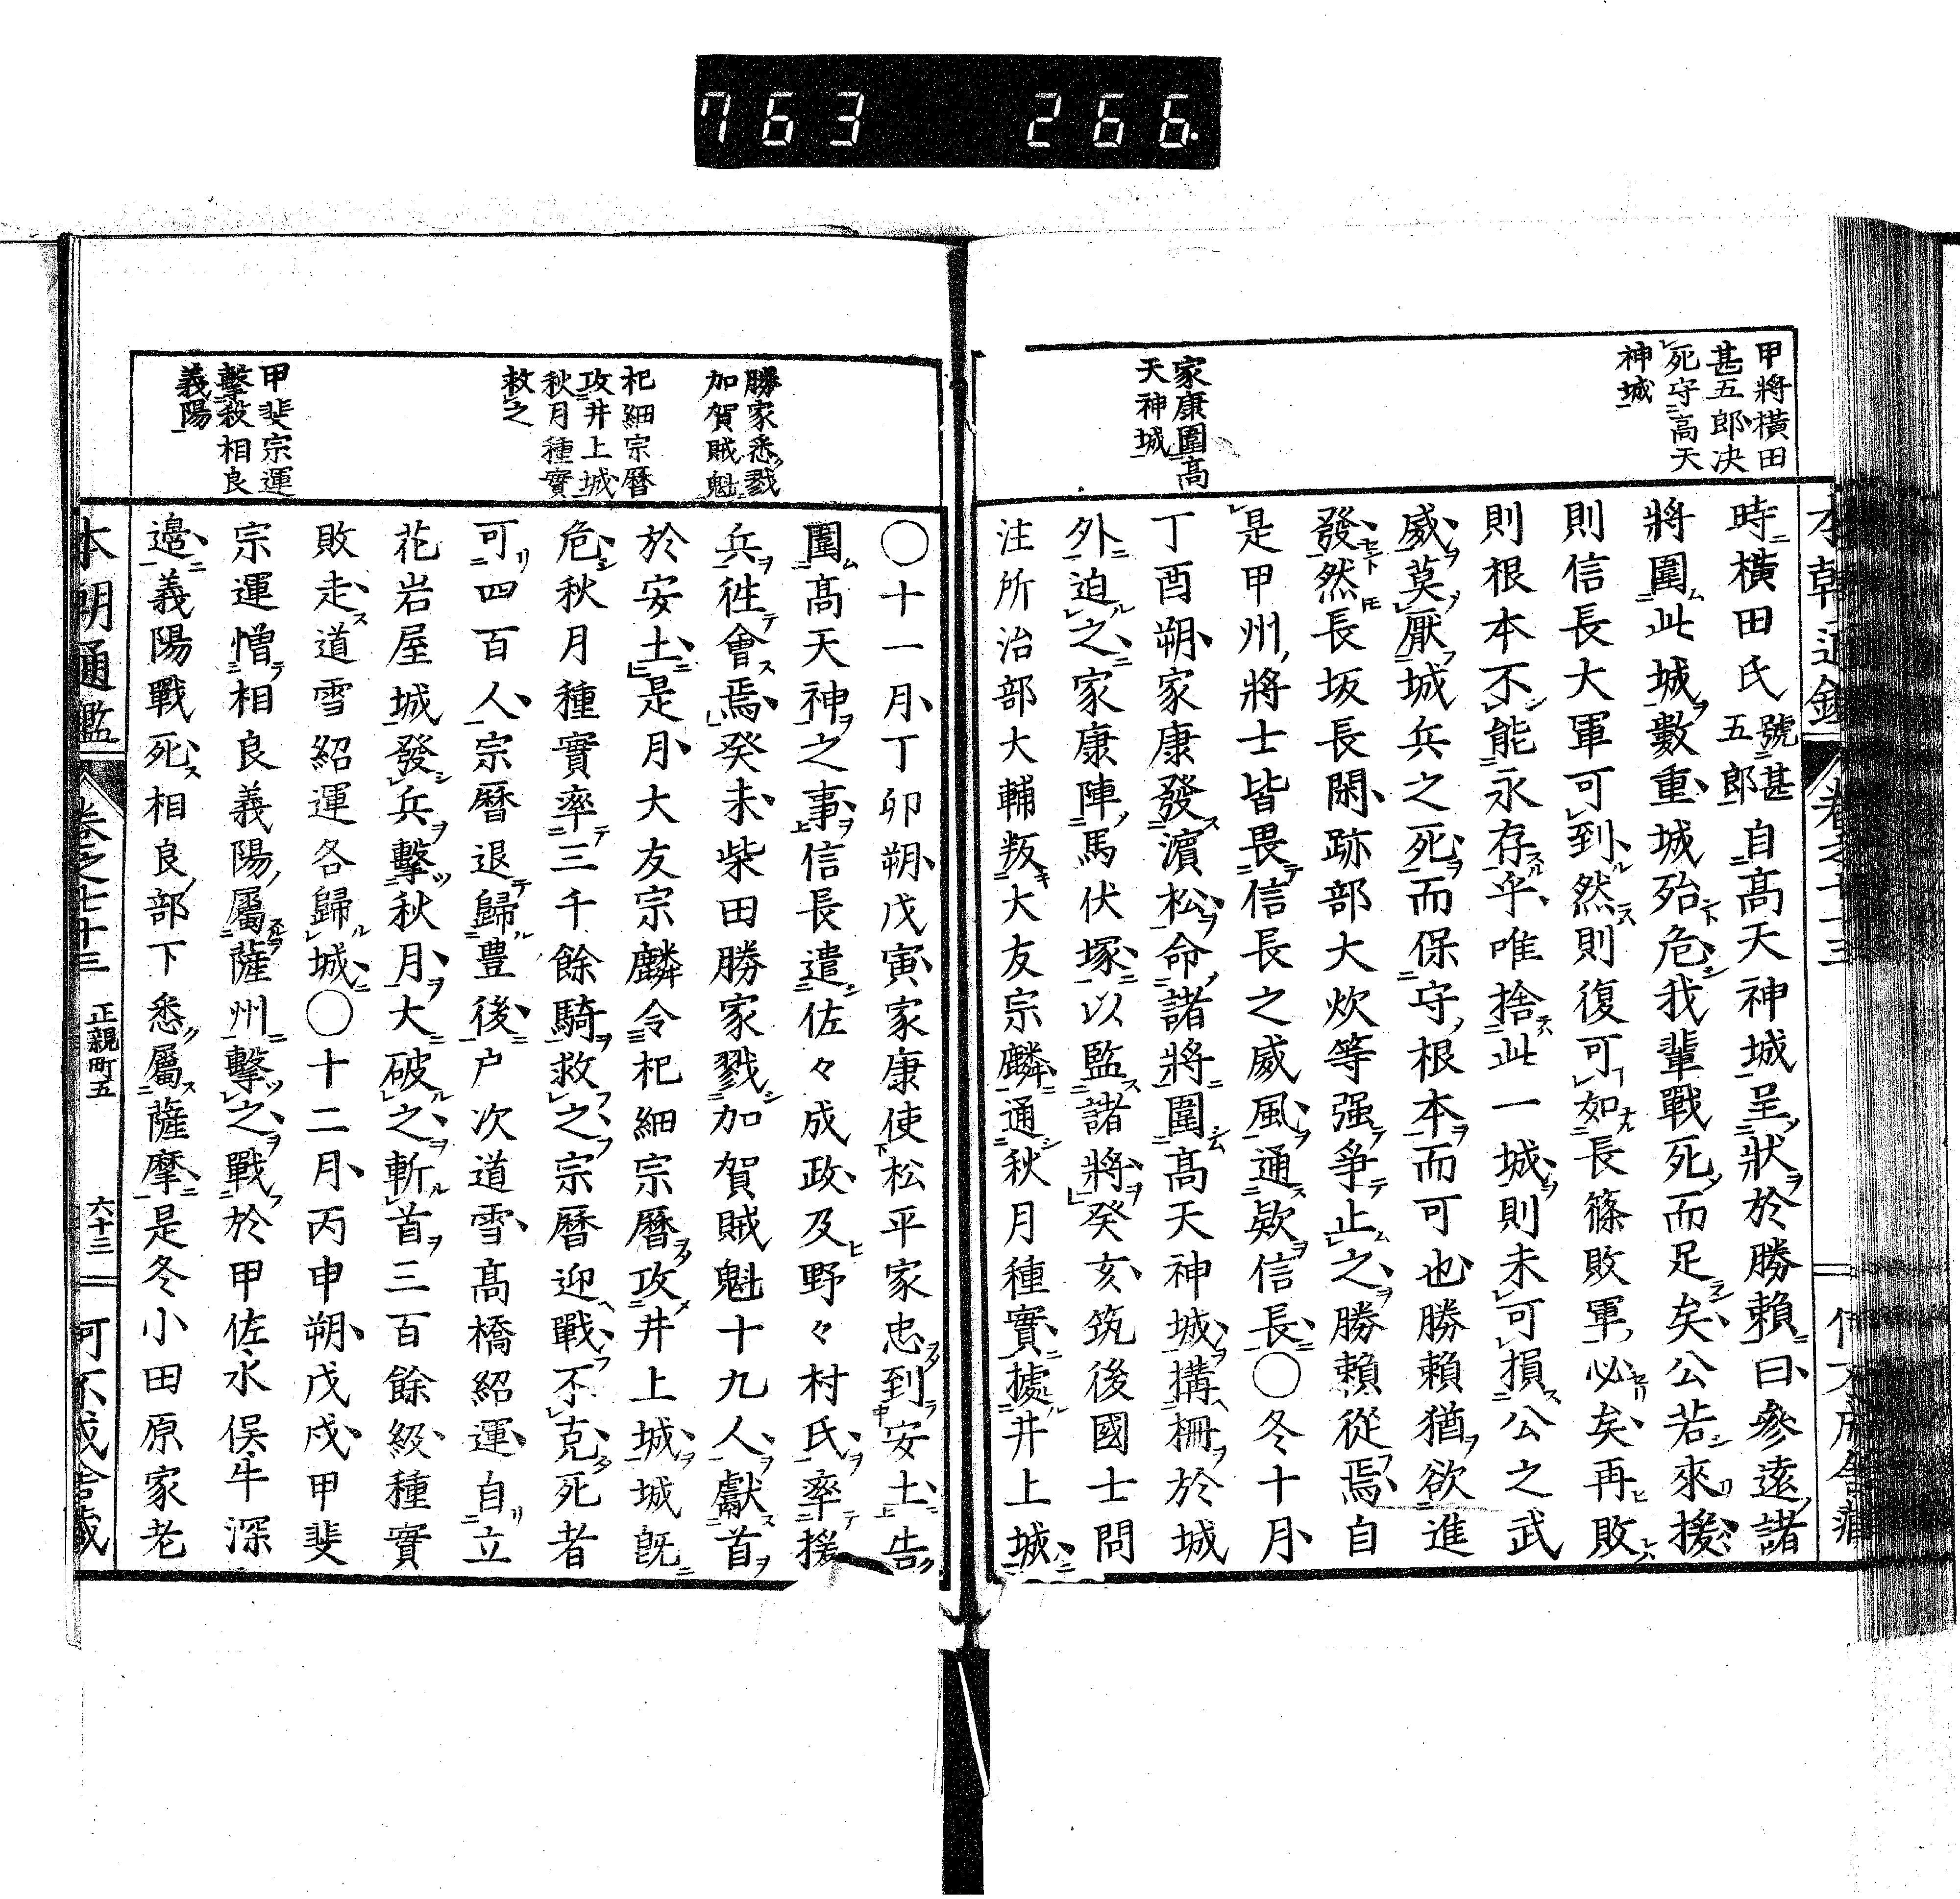 763 266.
甲將橫田
甚五郎決
死守高天
神城
家康圍高
天神城
時橫田氏號甚五郎自高天神城呈狀於勝賴曰參遠諸
將圍此城數重城殆危我輩戰死而足矣公若來援
則信長大軍可到然則復可如長篠敗軍必矣再敗
則根本不能永存乎唯捨此一城則未可損公之武
威莫厭城兵之死而保守根本而可也勝賴猶欲進
發然長坂長閑跡部大炊等强爭止之勝賴從焉自
是甲州將士皆畏信長之威風通欵信長〇冬十月
丁酉朔家康發濵松命諸將圍高天神城搆柵於城
外迫之家康陣馬伏塚以監諸將癸亥筑後國士問
注所治部大輔叛大友宗麟通秋月種實據井上城
勝家悉戮
加賀賊魁
杞細宗曆
攻井上城
秋月種實
救之
甲斐宗運
擊殺相良
義陽
〇十一月丁卯朔戊寅家康使松平家忠到安土告
圍高天神之事信長遣佐々成政及野々村氏率援
兵徃會焉癸未柴田勝家戮加賀賊魁十九人獻首
於安土是月大友宗麟令杞細宗曆攻井上城城旣
危秋月種實率三千餘騎救之宗曆迎戰不克死者
可四百人宗曆退歸豊後户次道雪高橋紹運自立
花岩屋城發兵擊秋月大破之斬首三百餘級種實
敗走道雪紹運各歸城〇十二月丙申朔戊戌甲斐
宗運憎相良義陽屬薩州擊之戰於甲佐水俣牛深
邉義陽戰死相良部下悉屬薩摩是冬小田原家老
本朝通鑑 卷之七十三 正親町五 六十三